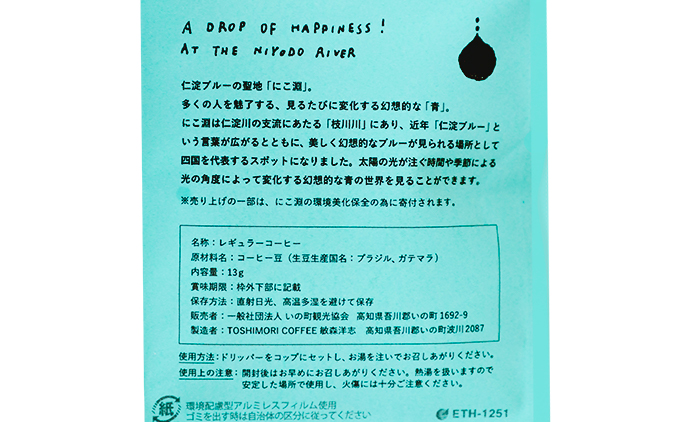 A DROP OF HAPPINESS!
AT THE NIYODO RIVER
仁淀ブルーの聖地「にこ淵」。
多くの人を魅了する、見るたびに変化する幻想的な「青」。
にこ淵は仁淀川の支流にあたる「枝川川」にあり、近年「仁淀ブルー」と
いう言葉が広がるとともに、美しく幻想的なブルーが見られる場所として
四国を代表するスポットになりました。太陽の光が注ぐ時間や季節による
光の角度によって変化する幻想的な青の世界を見ることができます。
※売り上げの一部は、にこ淵の環境美化保全の為に寄付されます。
名称：レギュラーコーヒー
原材料名：コーヒー豆（生豆生産国名：ブラジル、ガテマラ）
内容量：13g
賞味期限：枠外下部に記載
保存方法：直射日光、高温多湿を避けて保存
販売者：一般社団法人 いの町観光協会 高知県吾川郡いの町1692-9
製造者：TOSHIMORI COFFEE 敏森洋志 高知県吾川郡いの町波川2087
使用方法：ドリッパーをコップにセットし、お湯を注いでお召しあがりください。
使用上の注意：開封後はお早めにお召しあがりください。熱湯を扱いますので
安定した場所で使用し、火傷には十分ご注意ください。
紙
環境配慮型アルミレスフィルム使用
ゴミを出す時は自治体の区分に従ってください
ETH-1251